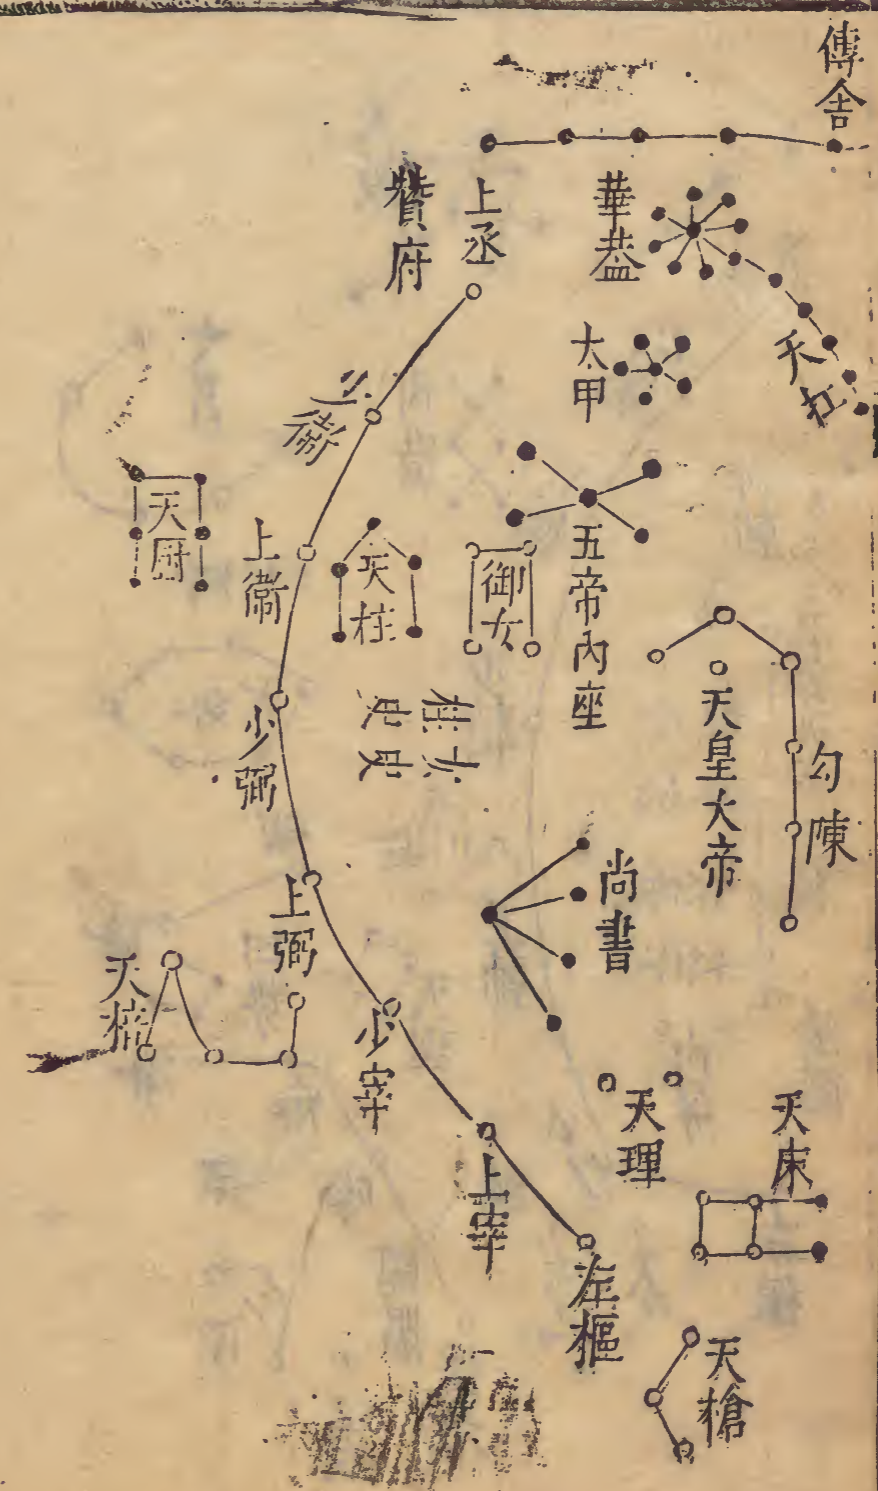 傳舍
華蓋
上丞
贊府
天杠
太甲
少衛
五帝內座
御女
天柱
上衛
天厨
天皇大帝
勾陳
女史
柱史
少弼
尚書
上弼
天棓
少宰
天理
天床
上宰
左樞
天槍